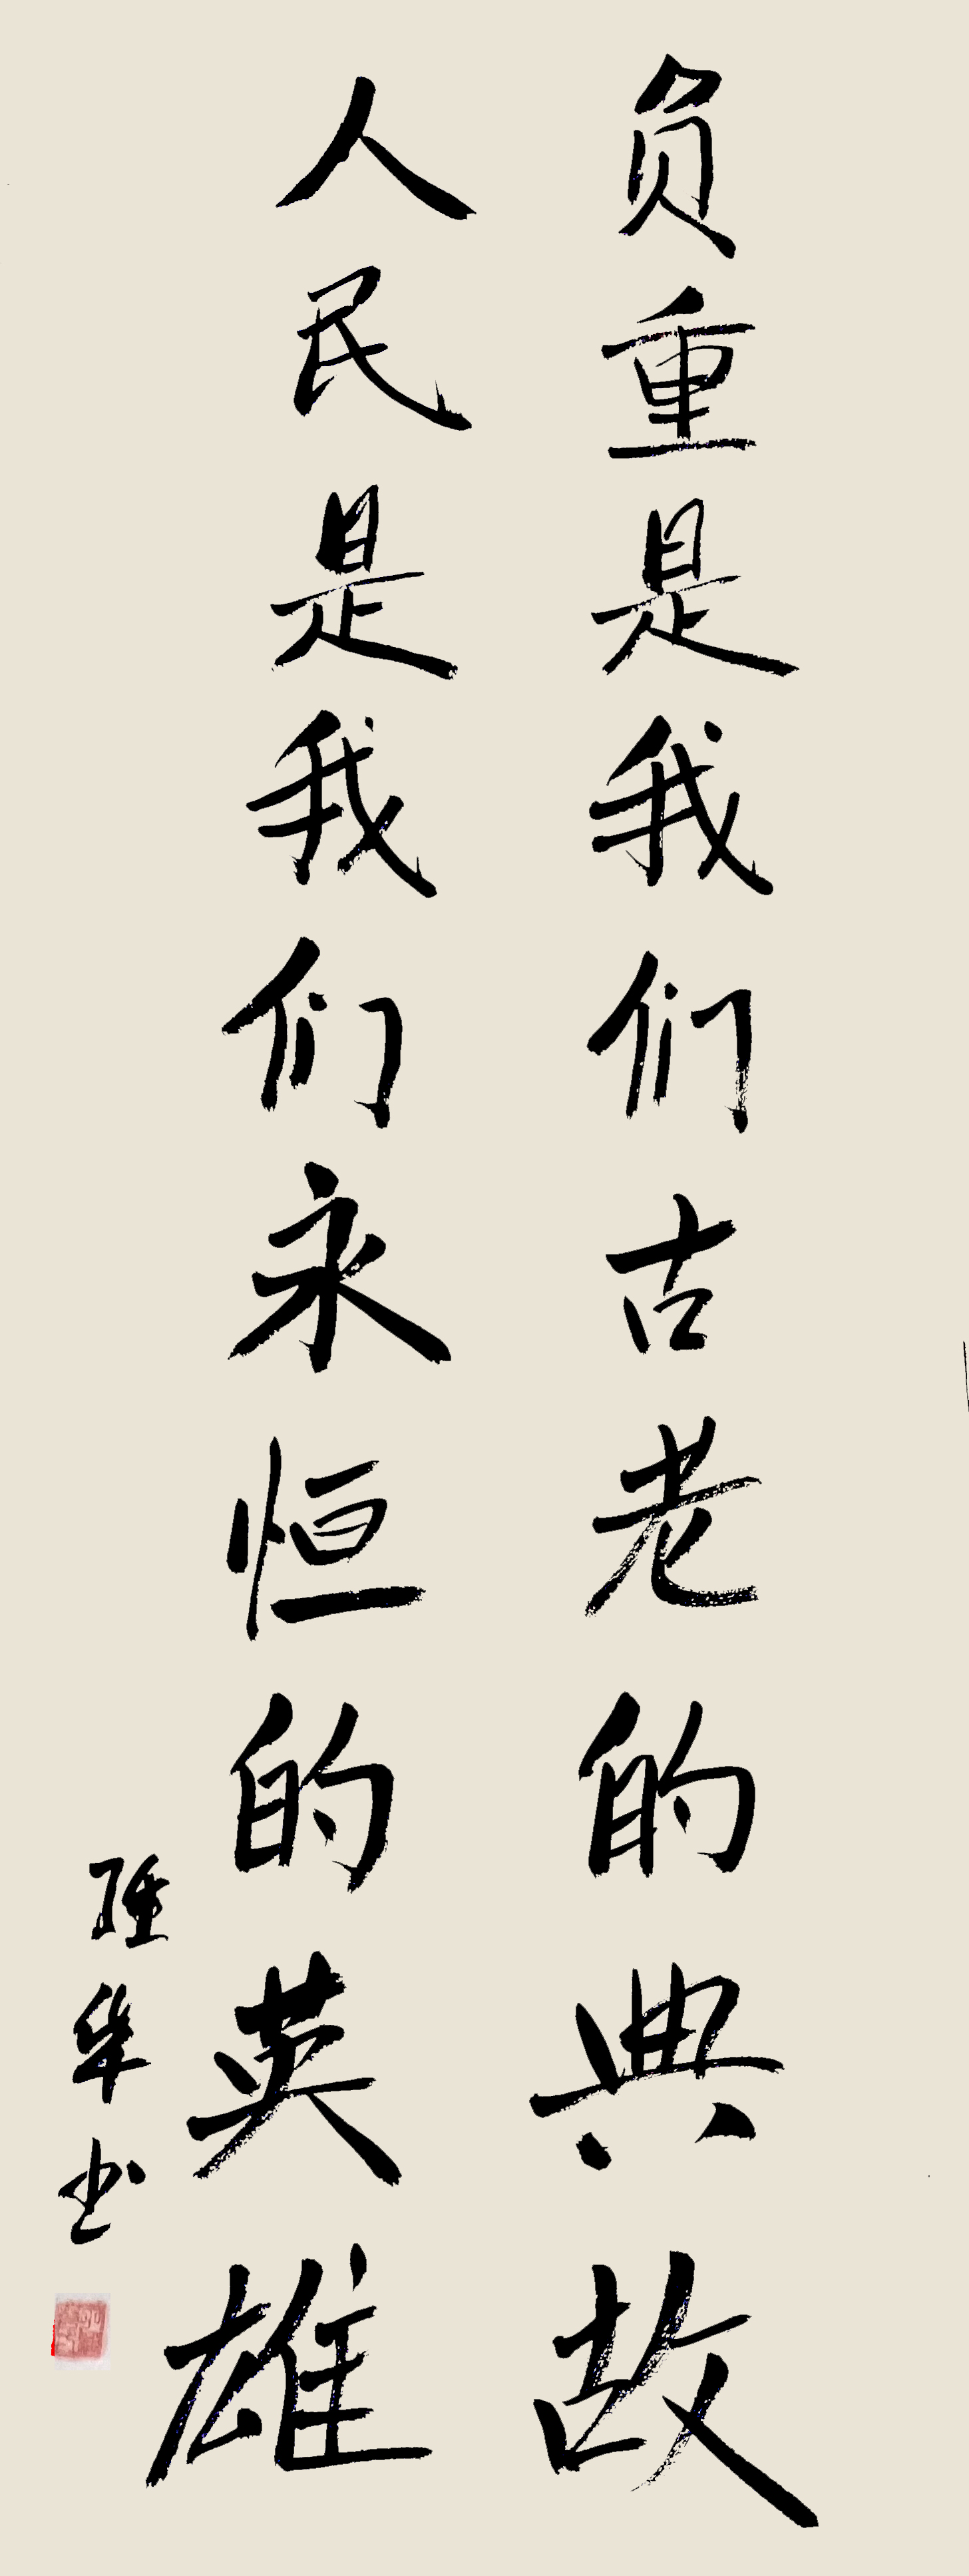 负重是我们古老的典故
人民是我们永恒的英雄
华书